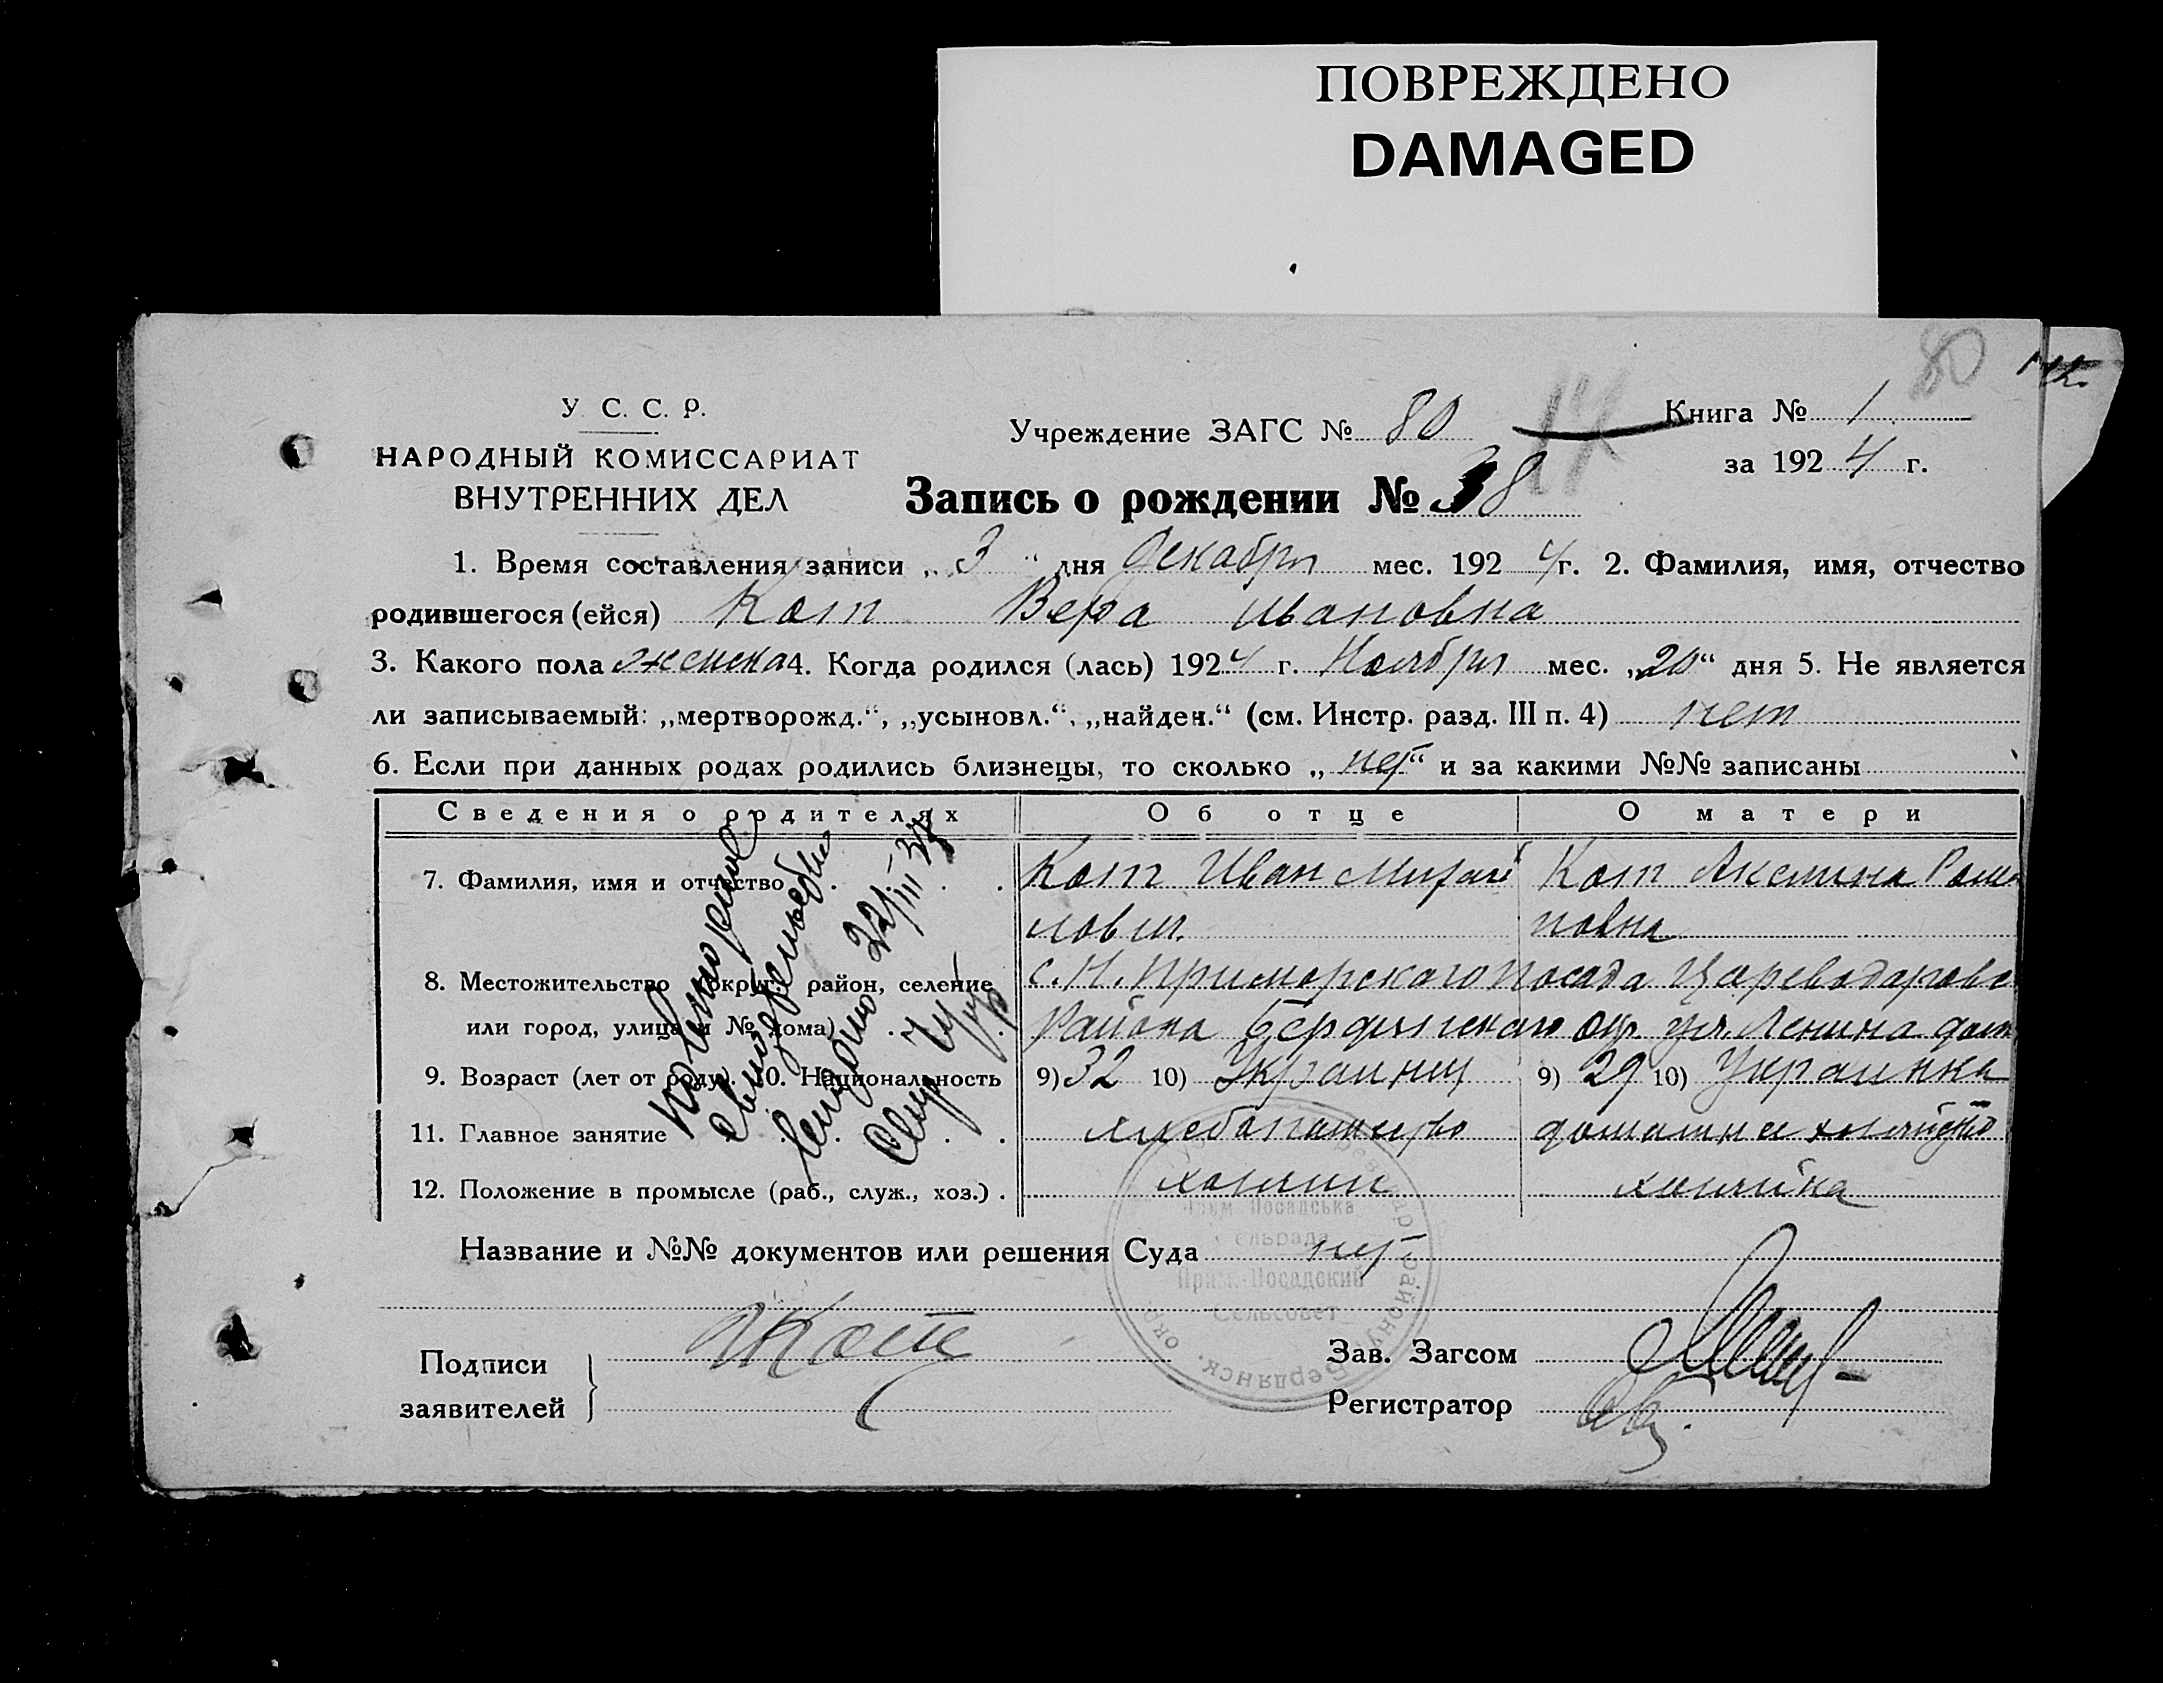 ПОВРЕЖДЕНО
DAMAGED
80
У. С. С. Р.
НАРОДНЫЙ КОМИССАРИАТ
ВНУТРЕННИХ ДЕЛ
Учреждение ЗАГС № 80
Книга № 1
за 1924 г.
Запись о рождении № 38
1. Время составления записи „3“ дня Декабря мес. 1924 г. 2. Фамилия, имя, отчество
родившегося (ейся) Кот Вера Ивановна
3. Какого пола женска 4. Когда родился (лась) 1924 г. Ноября мес. „20“ дня 5. Не является
ли записываемый: „мертворожд.“, „усыновл.“, „найден.“ (см. Инстр. разд. III п. 4) нет
6. Если при данных родах родились близнецы, то сколько „нет“ и за какими №№ записаны
Сведения о родителях Об отце О матери
7. Фамилия, имя и отчество Кот Иван Кот
8. Местожительство (округ, район, селение С. Н. Приморского посада
или город, улица и № дома) Района Бердянского окр. ул. Ленина дом
9. Возраст (лет от роду). 10. Национальность 9) 32 10) Украинец 9) 29 10) Украинка
11. Главное занятие хлебопашество домашнее хозяйство
12. Положение в промысле (раб., служ., хоз.) хозяин хозяйка
свидетельство
22/III 37
Название и №№ документов или решения Суда нет
Прим. Посадська
сельрада
Прим.-Посадский
Сельсовет
Бердянск. окр.
Подписи
заявителей
Кот
Зав. Загсом
Регистратор